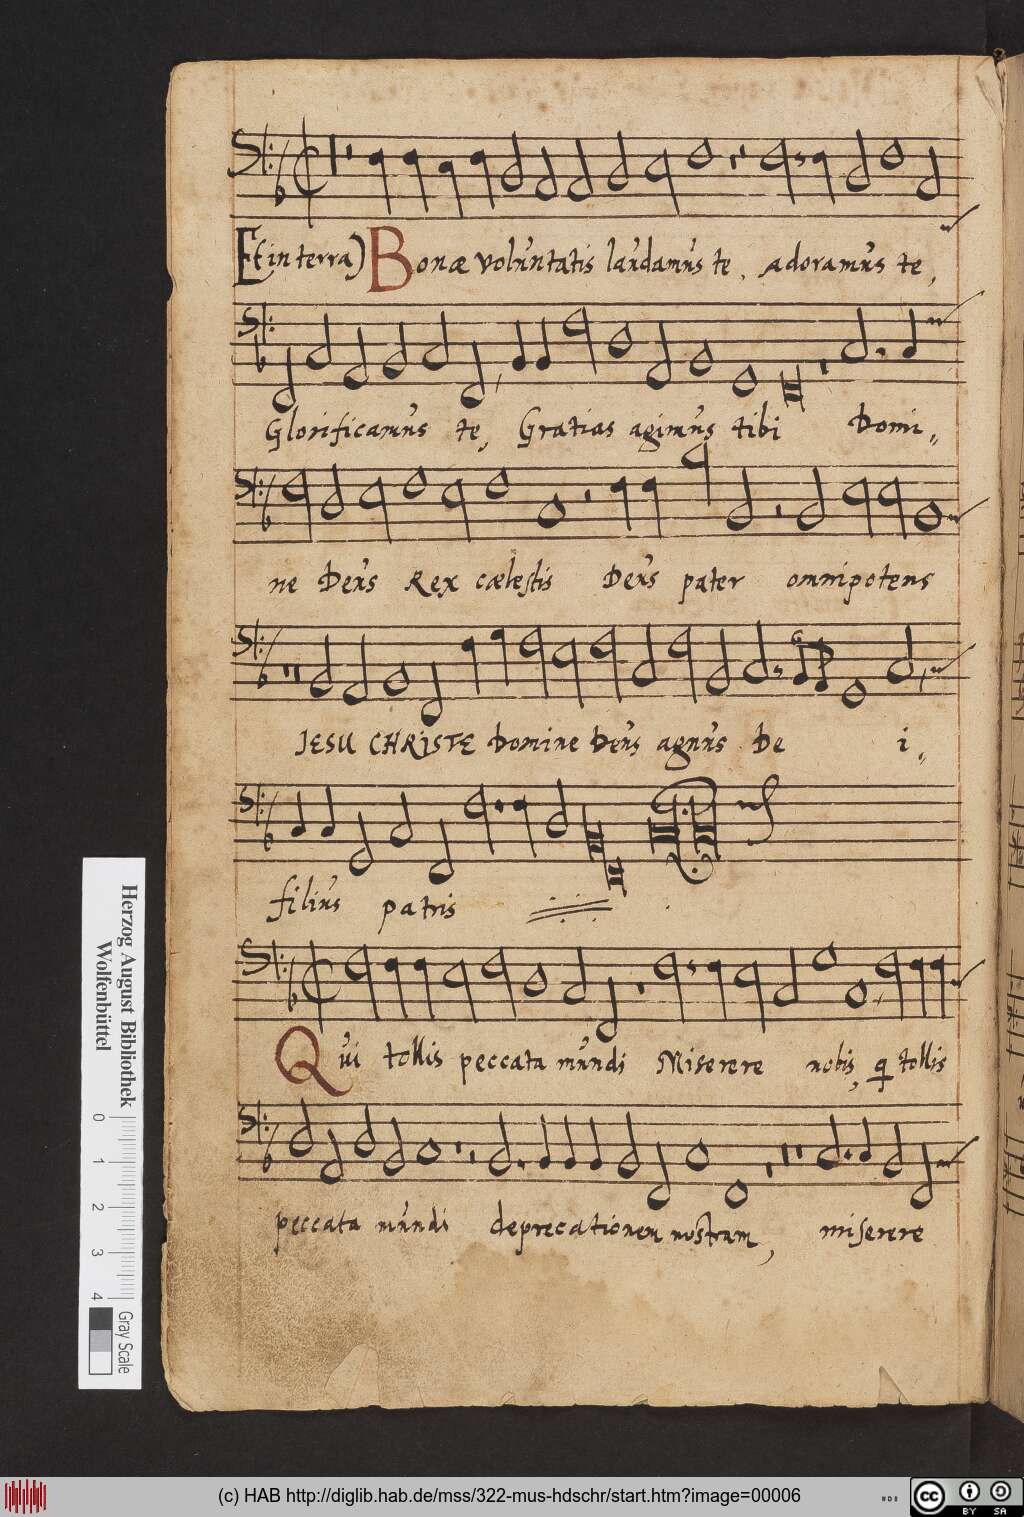 Et in terra) Bonæ voluntatis laudamus te, adoramus te,
Glorificamus te, Gratias agimus tibi Domi„
ne Deus Rex cælestis Deus pater omnipotens
JESU CHRISTE Domine Deus agnus De i„
filius patris
Qui tollis peccata mundi Miserere nobis, q tollis
peccata mundi deprecationem nostram, miserere
Herzog August Bibliothek
Wolfenbüttel
0 1 2 3 4
Gray Scale
(c) HAB http://diglib.hab.de/mss/322-mus-hdschr/start.htm?image=00006
cc BY SA